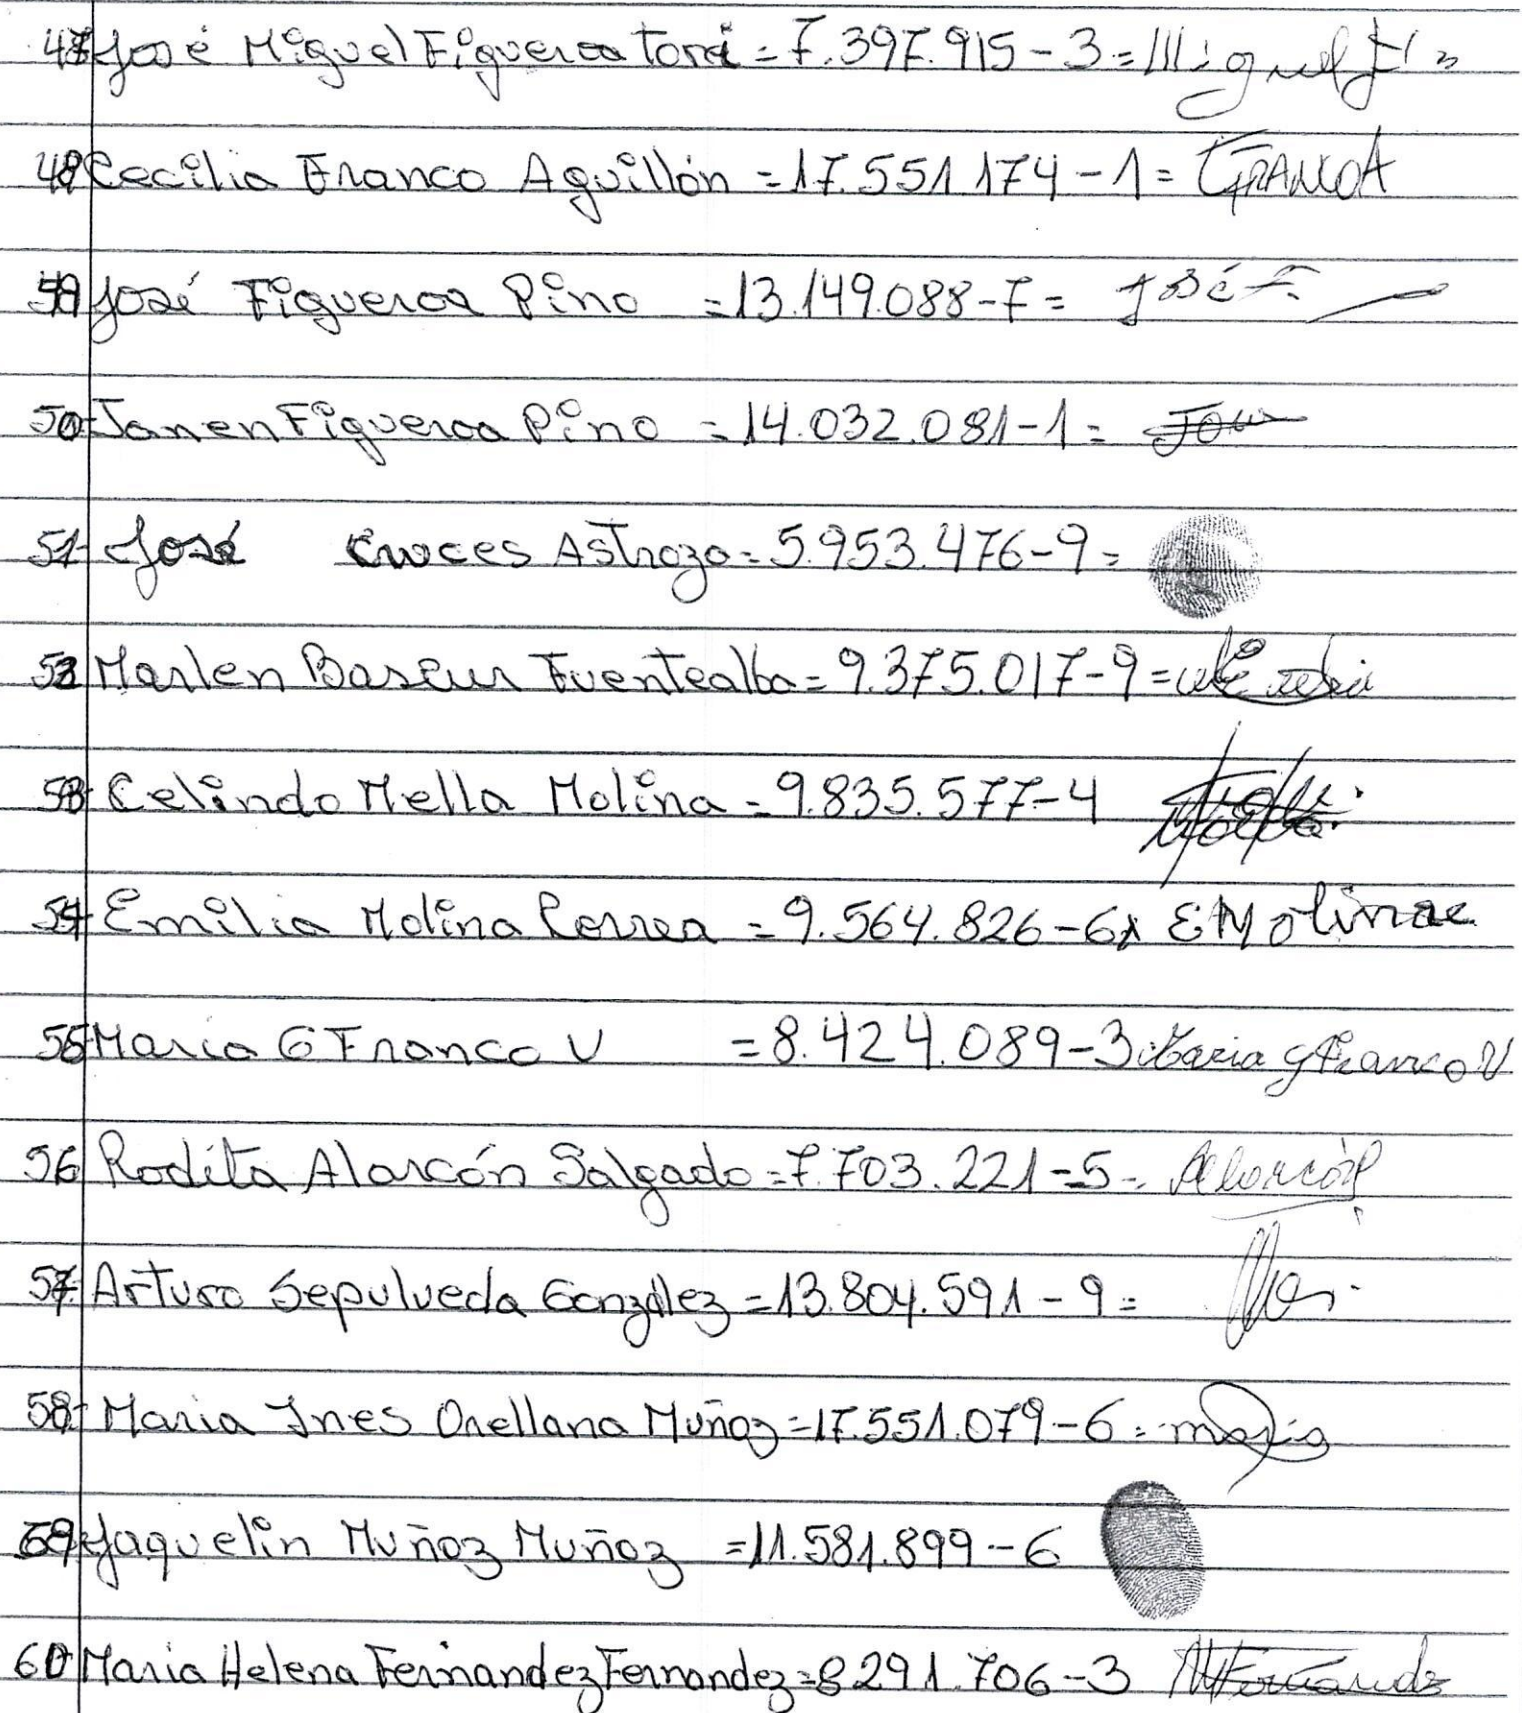 47 José Miguel Figueroa Toro = 7.397.915-3 = Miguel F
48 Cecilia Franco Aguillón = 17.551.174-1 = CFRANCOA
49 José Figueroa Pino = 13.149.088-7 = José F.
50 Janen Figueroa Pino = 14.032.081-1 =
51- José Cruces Astroza = 5.953.476-9 =
52 Marlen Bascur Fuentealba = 9.375.017-9 =
53 Celindo Mella Molina = 9.835.577-4
54 Emilia Molina Correa = 9.564.826-6 EMolinac
55 Maria G Franco V = 8.424.089-3 Maria G Franco V
56 Rodita Alarcón Salgado = 7.703.221-5 = Alarcón
57 Arturo Sepulveda González = 13.804.591-9 =
58 Maria Ines Orellana Muñoz = 17.551.079-6 = maria
59 Jaquelin Muñoz Muñoz = 11.581.899-6
60 Maria Helena Fernandez Fernandez = 8291.706-3 MFernandz